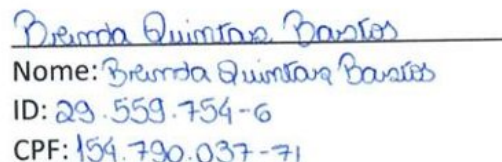 Brenda Quintan Bastos
Nome: Brenda Quintan Bastos
ID: 29.559.754-6
CPF: 154.790.037-71